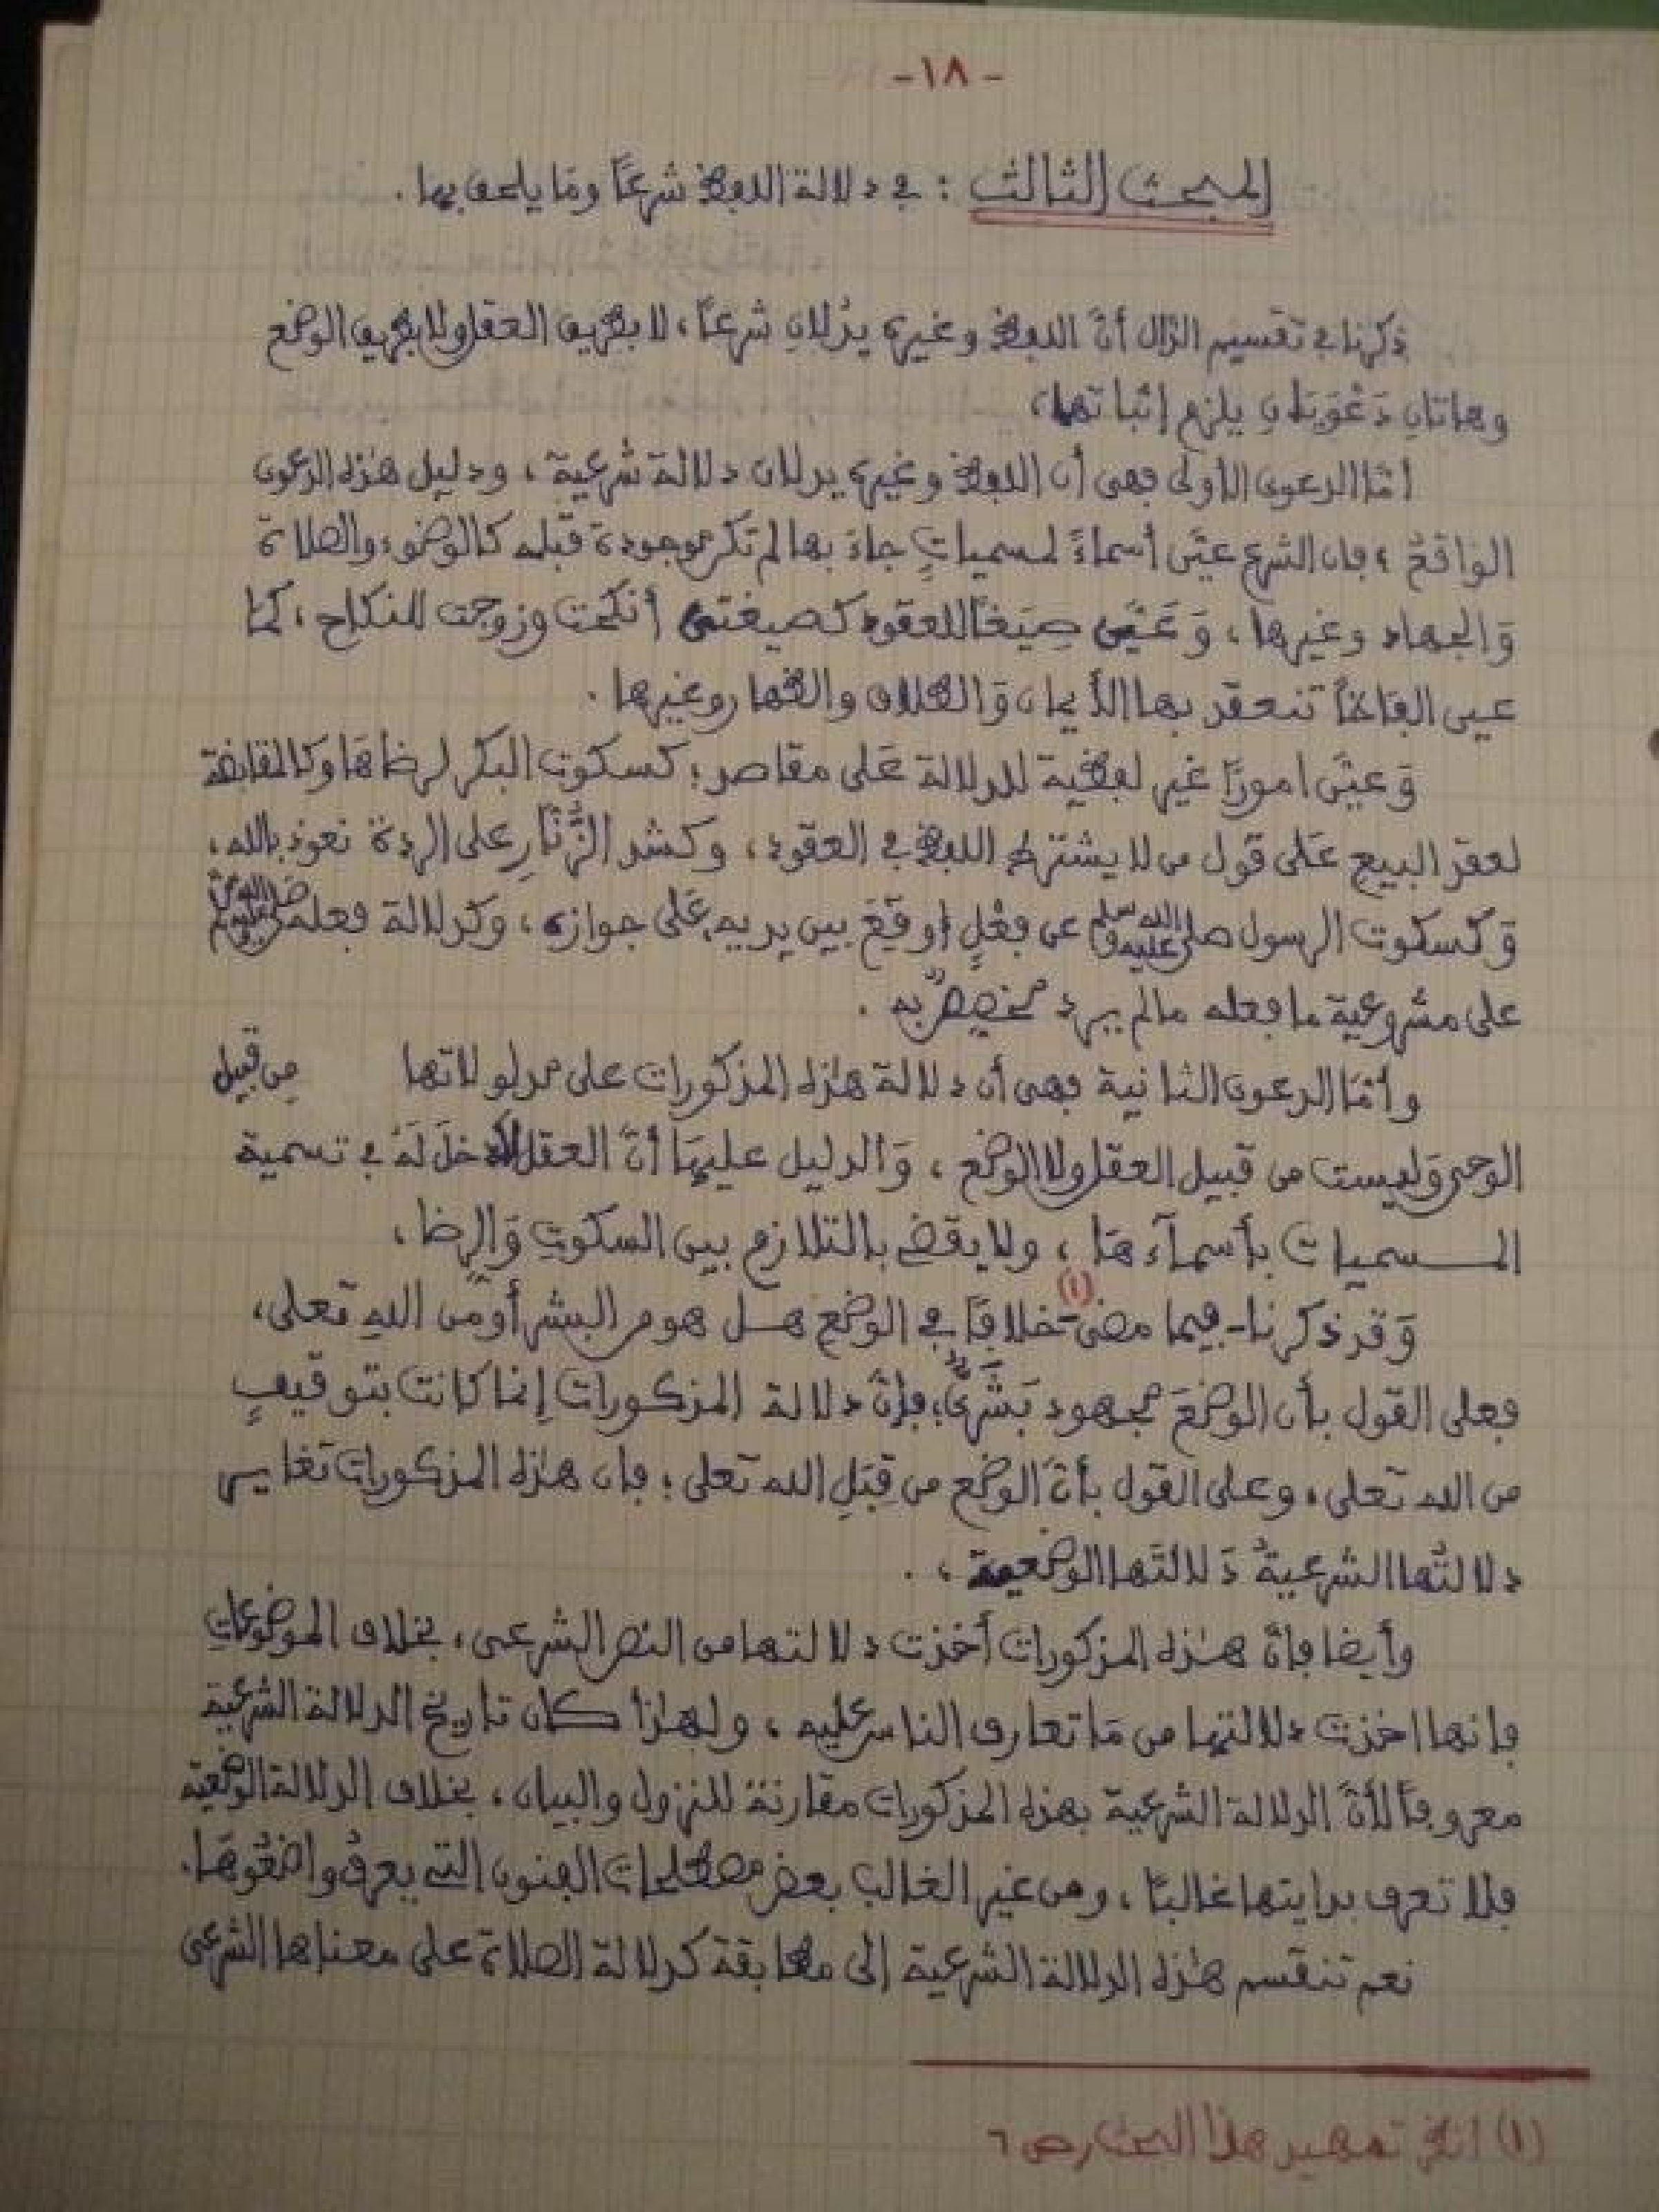 -١٨-
المبحث الثالث : في دلالة اللفظ شرعًا وما يلحق بها .
ذكرنا في تقسيم الدال أنّ اللفظ وغيره يدُلانِ شرعًا، لا بطريق العقل ولا بطريق الوضع
وهاتانِ دَعْوَيَانِ يلزم إثباتها،
أمّا الدعوى الأولى فهي أن اللفظ وغيره يدلان دلالة شرعية ، ودليل هذه الدعوى
الواقعُ ؛ فإن الشرع عيَّن أسماءً لمسمياتٍ جاءَ بها لم تكن موجودة قبله كالوضوء والصلاة
وَالجهاد وغيرها ، وَعَيَّن صِيَغًا للعقود كصيغتي أنكحت وزوجت للنكاح ، كما
عين ألفاظًا تنعقد بها الأيمان وَالطلاق والظهار وغيرها .
وَعيَّن امورًا غير لفظية للدلالة عَلى مقاصد ؛ كسكوت البكر لرضاهَا وكالمقابضة
لعقد البيع عَلى قول من لا يشترط اللفظ في العقود ، وكشد الزُّنَّارِ على الردة نعوذ بالله ،
وَكسكوت الرسول صلى الله عليه وسلم عن فِعْلٍ أوقِعَ بين يديه عَلى جوازه ، وكدلالة فعله صلى الله عليه وسلم
على مشروعية ما فعله مالم يرد مخصِّصٌ به .
وأمّا الدعوى الثانية فهي أن دلالة هٰذه المذكورات على مدلولاتها من قبيل
الوحي وَليست من قبيل العقل ولا الوضع ، وَالدليل عليهَا أنّ العقل لا دخلَ لَهُ في تسمية
المسميات بأسمآءهَا ، ولا يقضي بالتلازم بين السكوتِ وَالرضا ،
وَقد ذكرنا - فيما مضى -(١) خلافًا في الوضع هل هو من البشر أو من اللهِ تعلى،
فعلى القول بأن الوضعَ مجهود بَشَريٌّ؛ فإنّ دلالة المذكورات إنما كانت بتوقيفٍ
من الله تعلى ، وعلى القول بأنّ الوضع من قِبَلِ الله تعلى ؛ فإن هٰذه المذكورات تغاير
دلالتُها الشرعيةُ دَلالتَها الوضعية ، .
وأيضا فإنّ هٰذه المذكورات أخذت دلالتها من النص الشرعي ، بخلاف الموضوعاتِ
فإنها اخذت دلالتها من مَا تعارف الناس عليه ، ولهٰذا كان تاريخ الدلالة الشرعية
معروفًا لأنّ الدلالة الشرعية بهذه المذكورات مقارنة للنزول والبيان ، بخلاف الدلالة الوضعية
فلا تعرف بدايتها غالبًا ، ومن غير الغالب بعض مصطلحات الفنون التي يعرفُ واضعُوهَا.
نعم تنقسم هٰذه الدلالة الشرعية إلى مطابقة كدلالة الصلاة على معناها الشرعي
(١) انظر تمهيد هذا البحث ص ٦